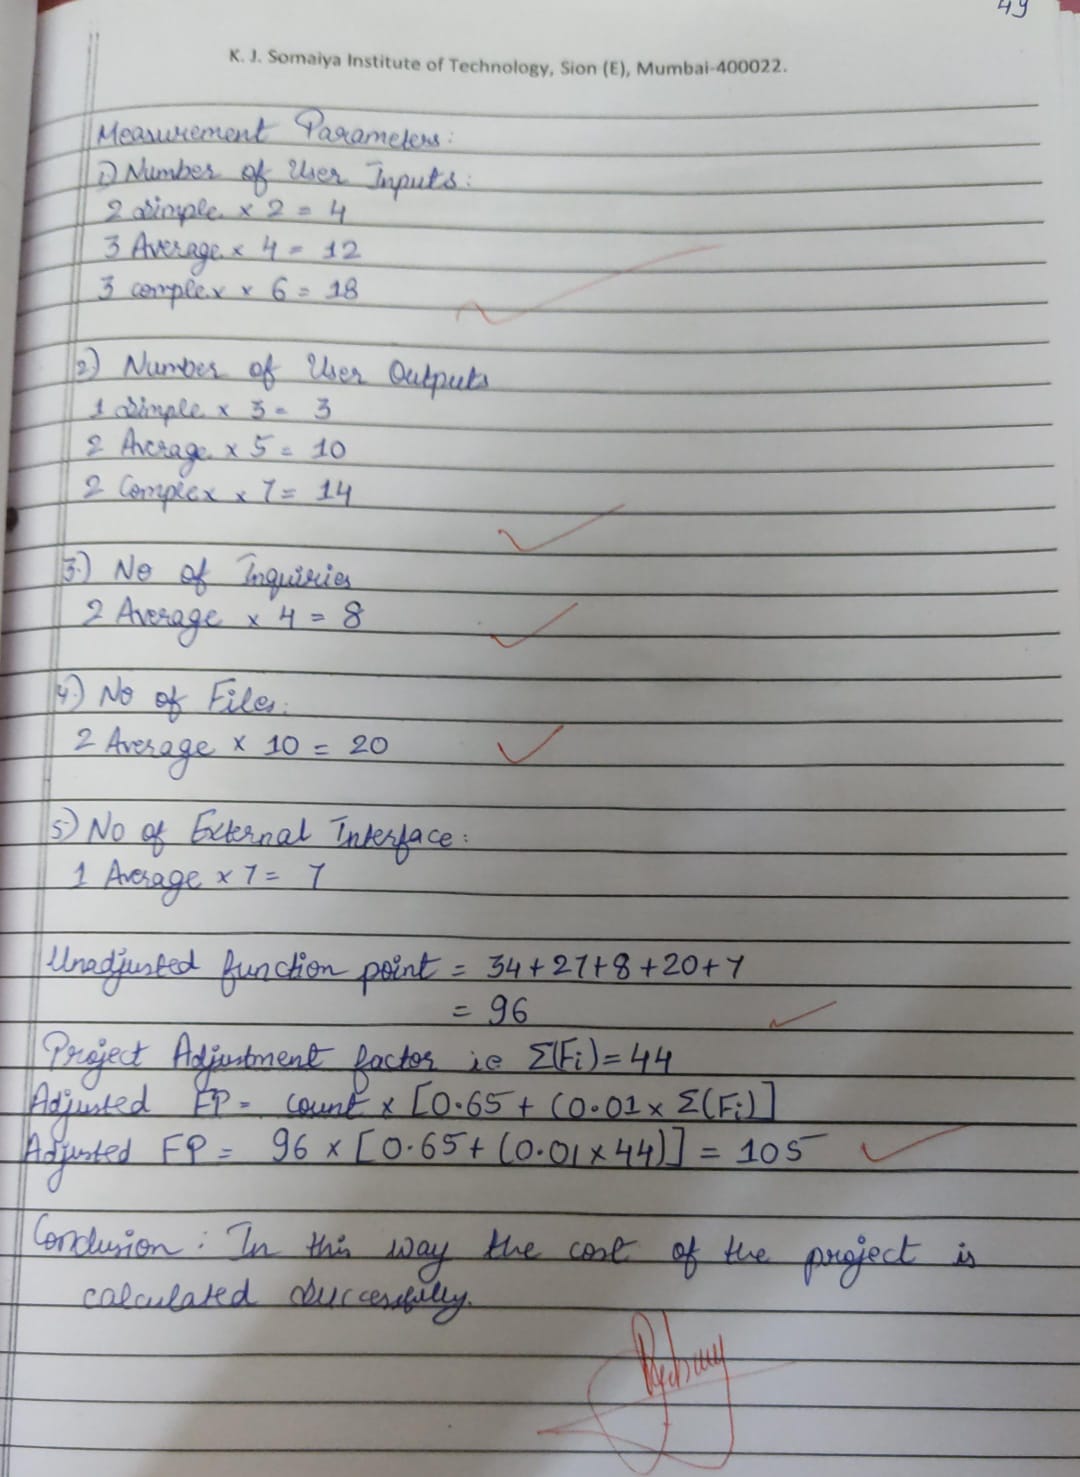 49
K. J. Somaiya Institute of Technology, Sion (E), Mumbai-400022.
Measurement Parameters:
1) Number of User Inputs:
2 simple x 2 = 4
3 Average x 4 = 12
3 complex x 6 = 18
2) Number of User Outputs
1 simple x 3 = 3
2 Average x 5 = 10
2 Complex x 7 = 14
3.) No of Inquiries
2 Average x 4 = 8
4.) No of Files:
2 Average x 10 = 20
5) No of External Interface:
1 Average x 7 = 7
Unadjusted function point = 34+27+8+20+7
= 96
Project Adjustment factor ie Σ(Fi)=44
Adjusted FP = count x [0.65 + (0.01 x Σ(Fi)]
Adjusted FP = 96 x [0.65+ (0.01 x 44)] = 105
Conclusion: In this way the cost of the project is
calculated successfully.